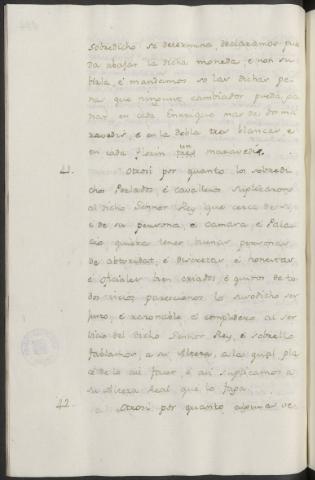 sobredicho se determina declaramos pue
da abajar la dicha moneda e non su
birla, é mandamos so las dichas pe
nas que ninguno cambiador pueda ga
nar en cada Enrique mas de dos ma
ravedis, e en la dobla tres blancas e
en cada florin un maravedis.
41. Otrosi por quanto los sobredi
chos Perlados, é cavalleros suplicaron
al dicho Sennor Rey que cerca de si,
é de su persona, e camara é Pala
cio quiera tener buenas personas
de abtoridat, é discretas é honestas,
é oficiales bien criados é quitos de to
dos vicios parescionos lo susodicho ser
justo, é razonable é complidero al ser
vicio del dicho Sennor Rey, é sobrello
fablamos a su Alteza, a la qual pla
ce de lo asi facer, é asi suplicamos a
su Alteza Real que lo faga.
42. Otrosi por quanto algunas ve